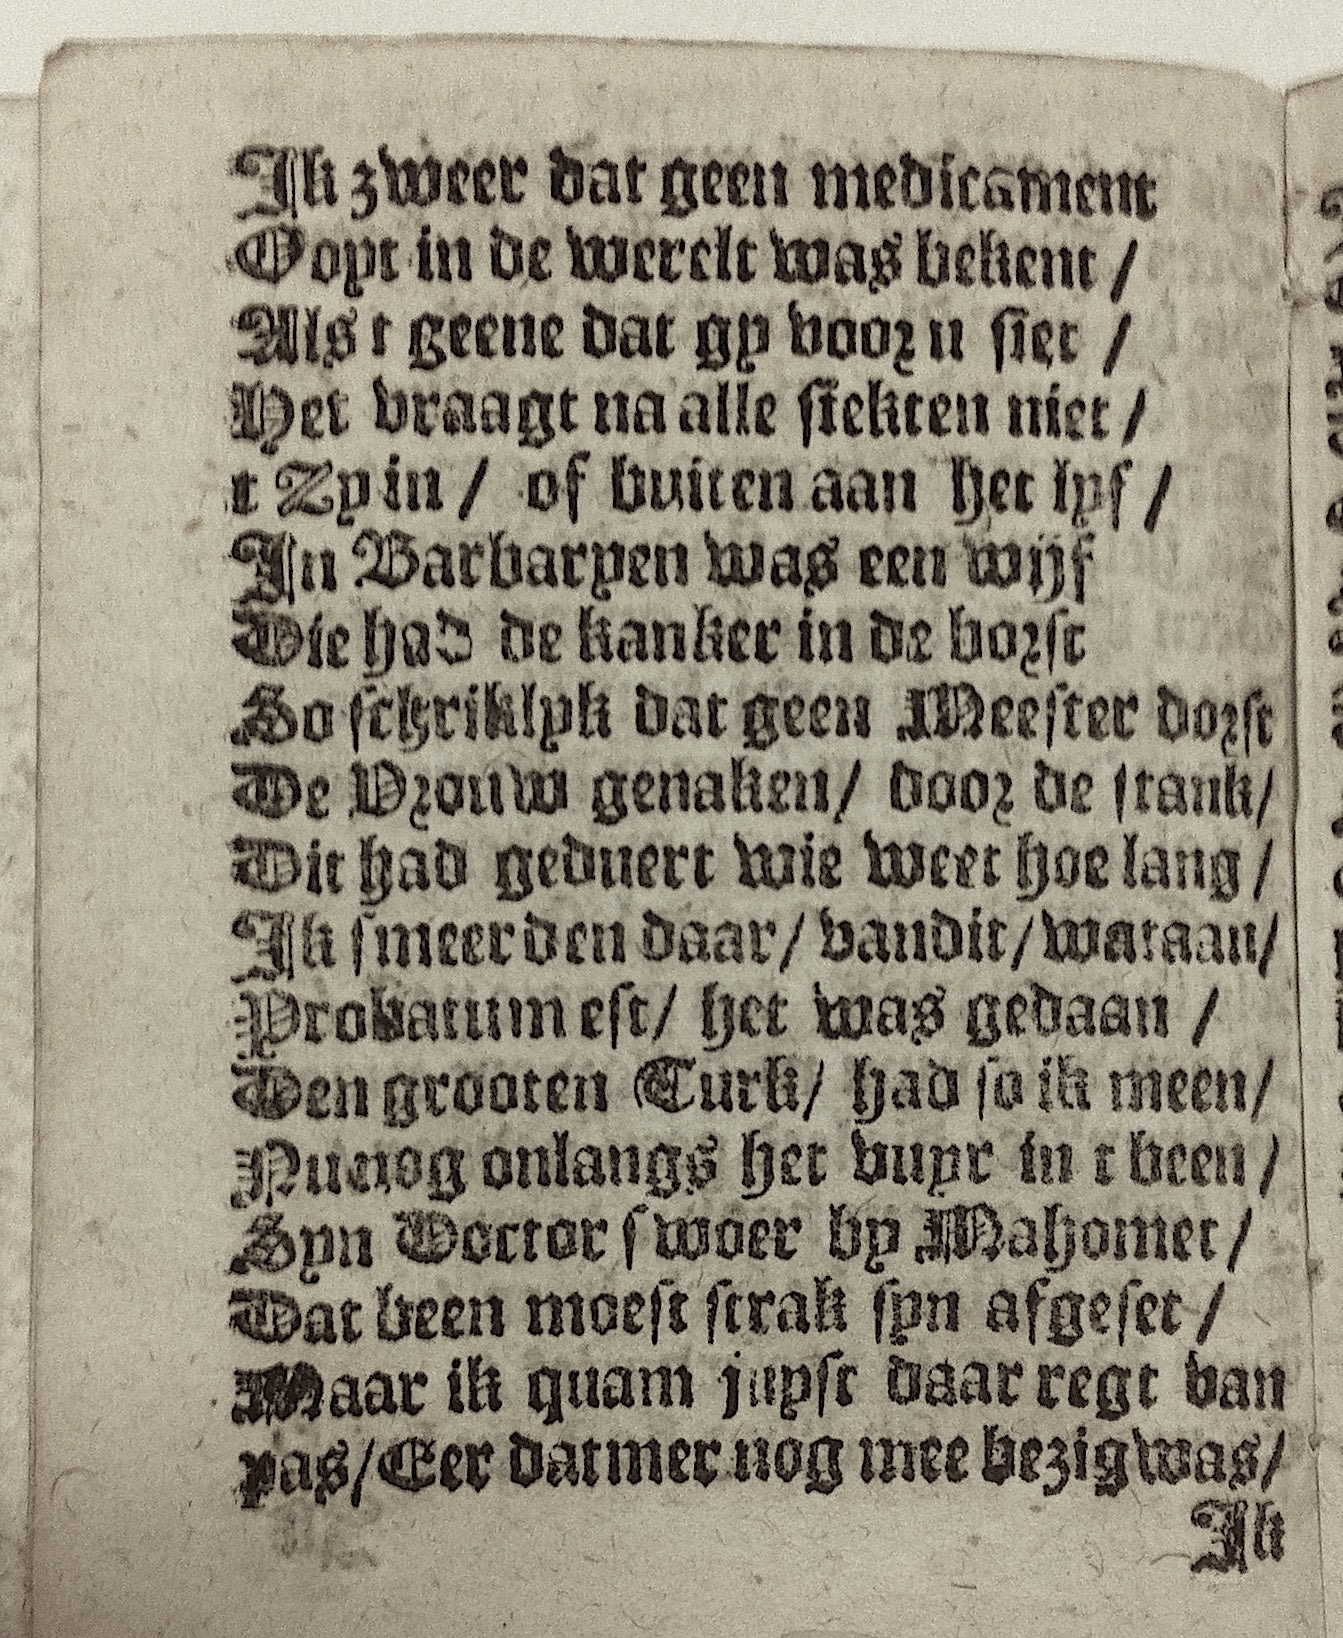 Ik zweer dat geen medicament
Ooyt in de werelt was bekent /
Als t geene dat gy voor u siet /
Het vraagt na alle siekten niet /
t Zy in / of buiten aan het lyf /
In Barbaryen was een wijf
Die had de kanker in de borst
So schriklyk dat geen Meester dorst
De Vrouw genaken / door de stank /
Dit had geduert wie weet hoe lang /
Ik smeerden daar / van dit / wat aan /
Probatum est / het was gedaan /
Den grooten Turk / had so ik meen /
Nu nog onlangs het vuyr in t been /
Syn Doctor swoer by Mahomet /
Dat been moest strak syn afgeset /
Maar ik quam juyst daar regt van
pas / Eer datmer nog mee bezig was /
Ik